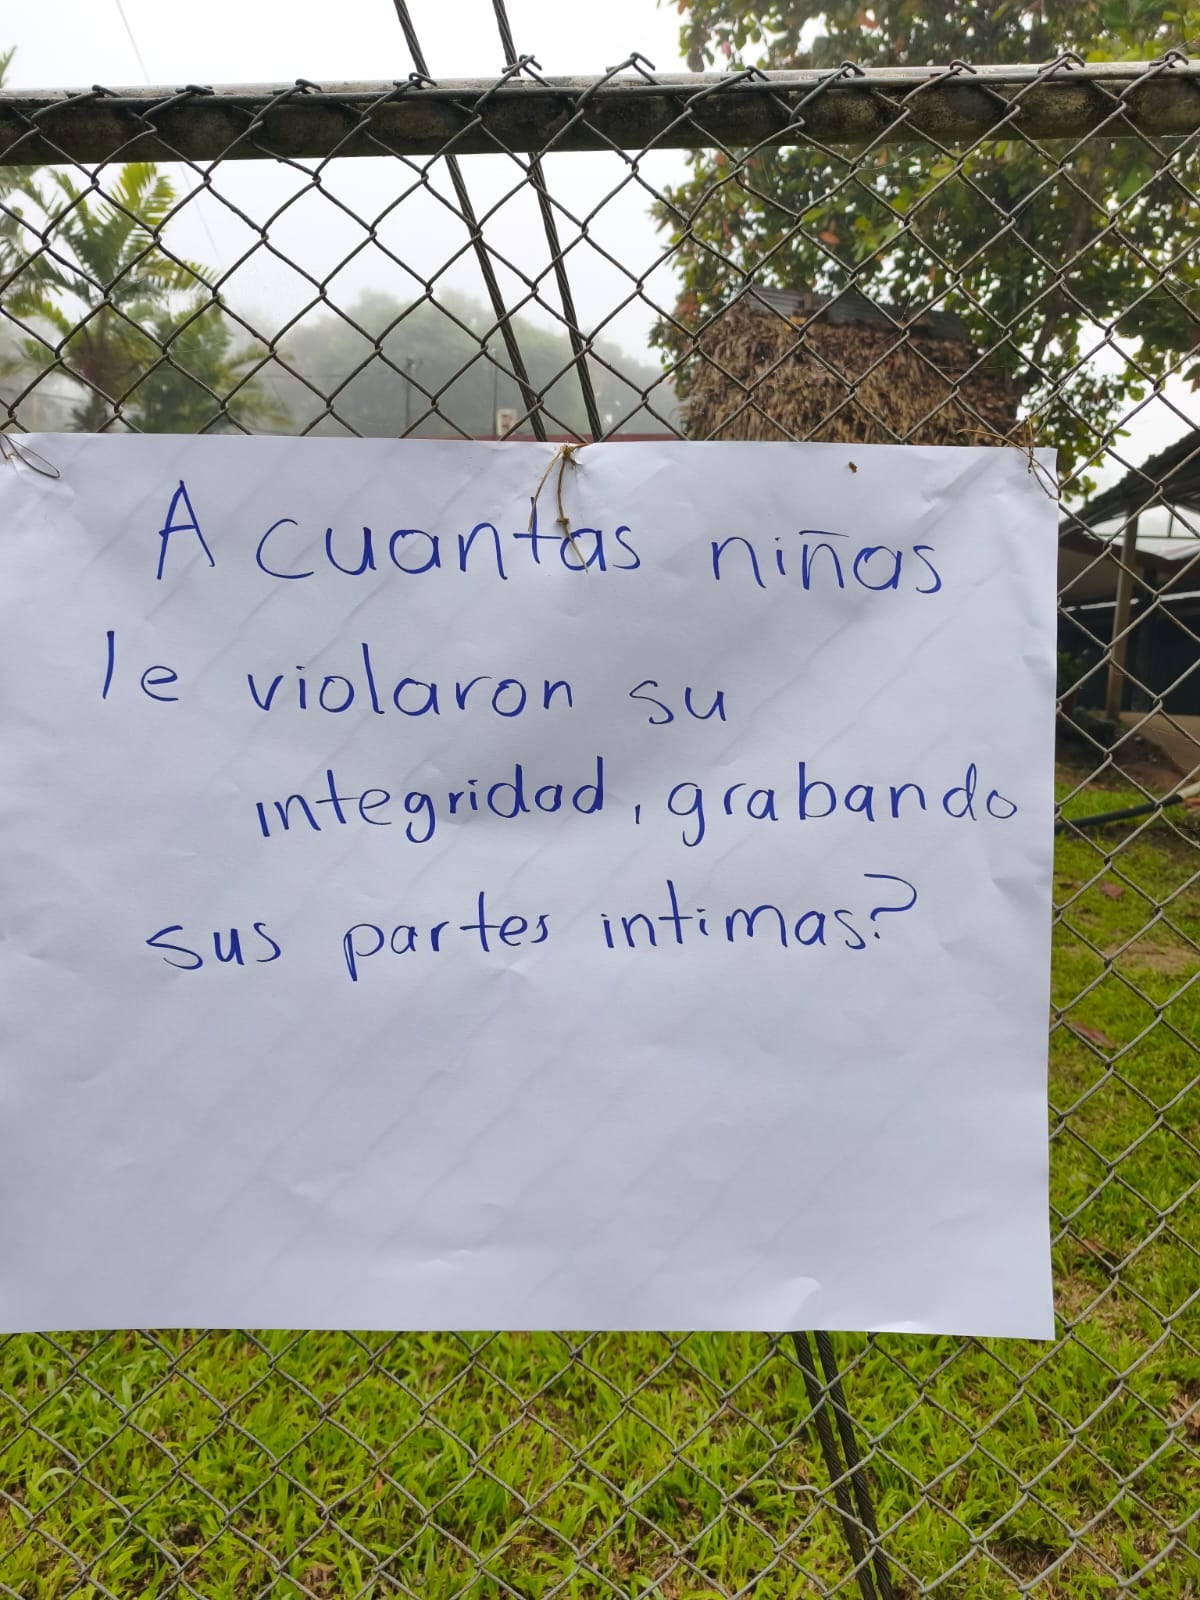 A cuantas niñas
le violaron su
integridad, grabando
sus partes intimas?